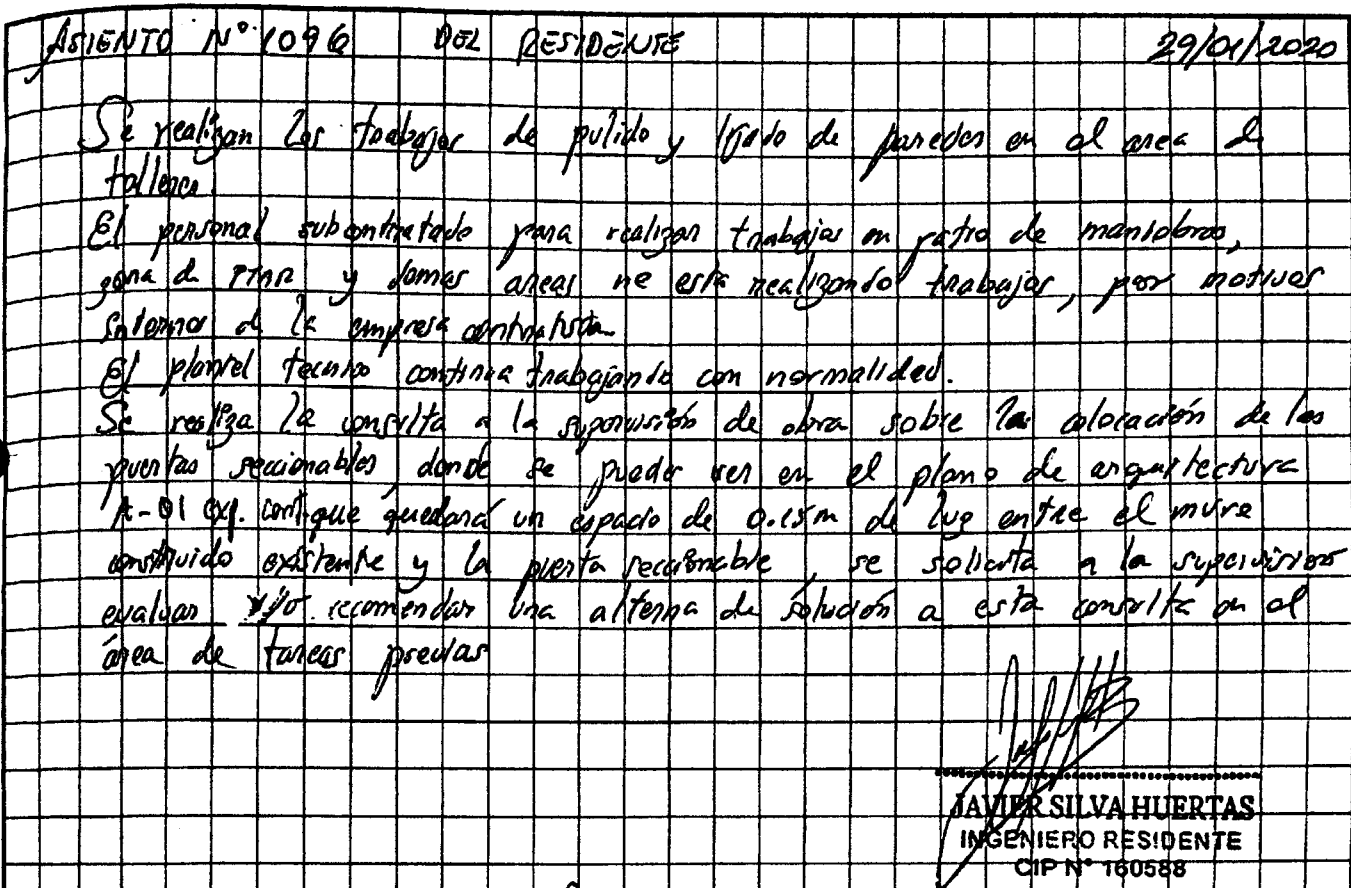 ASIENTO N° 1096 DEL RESIDENTE 29/01/2020
Se realizan los trabajos de pulido y lijado de paredes en el area de
talleres.
El personal subcontratado para realizar trabajos en patio de maniobras,
zona de PTAR y demas areas no está realizando trabajos, por motivos
internos de la empresa contratista.
El plantel tecnico continua trabajando con normalidad.
Se realiza la consulta a la supervisión de obra sobre las colocación de las
puertas seccionables, donde se puede ver en el plano de arquitectura
A-01 exp. cont. que quedará un espacio de 0.15m de luz entre el muro
construido existente y la puerta seccionable, se solicita a la supervision
evaluar y/o recomendar una alterna de solución a esta consulta en el
área de tareas previas
JAVIER SILVA HUERTAS
INGENIERO RESIDENTE
CIP N° 160588